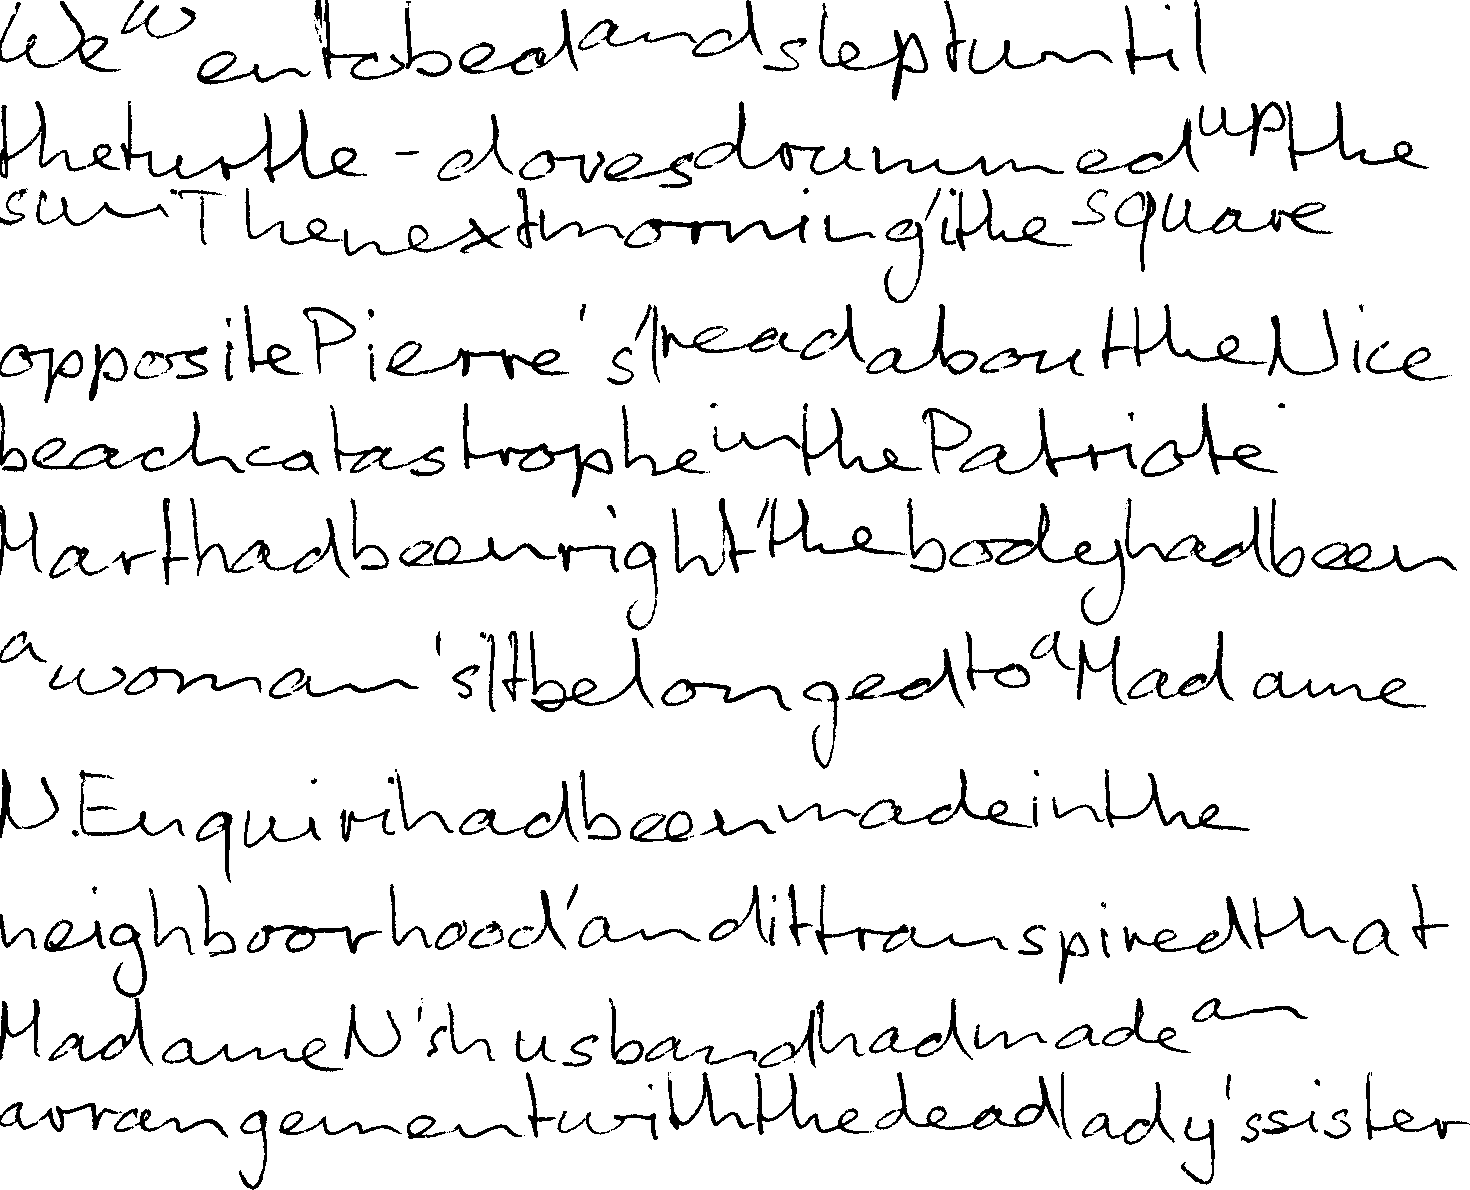 We went to bed and slept until
the turtle-doves drummed up the
sun. The next morning, in the square
opposite Pierre's, I read about the Nice
beach catastrophe in the Patriote.
Mart had been right, the body had been
a woman's. It belonged to a Madame
N. Enquiri had been made in the
neighboorhood, and it transpired that
Madame N's husband had made an
arrangement with the dead lady's sister